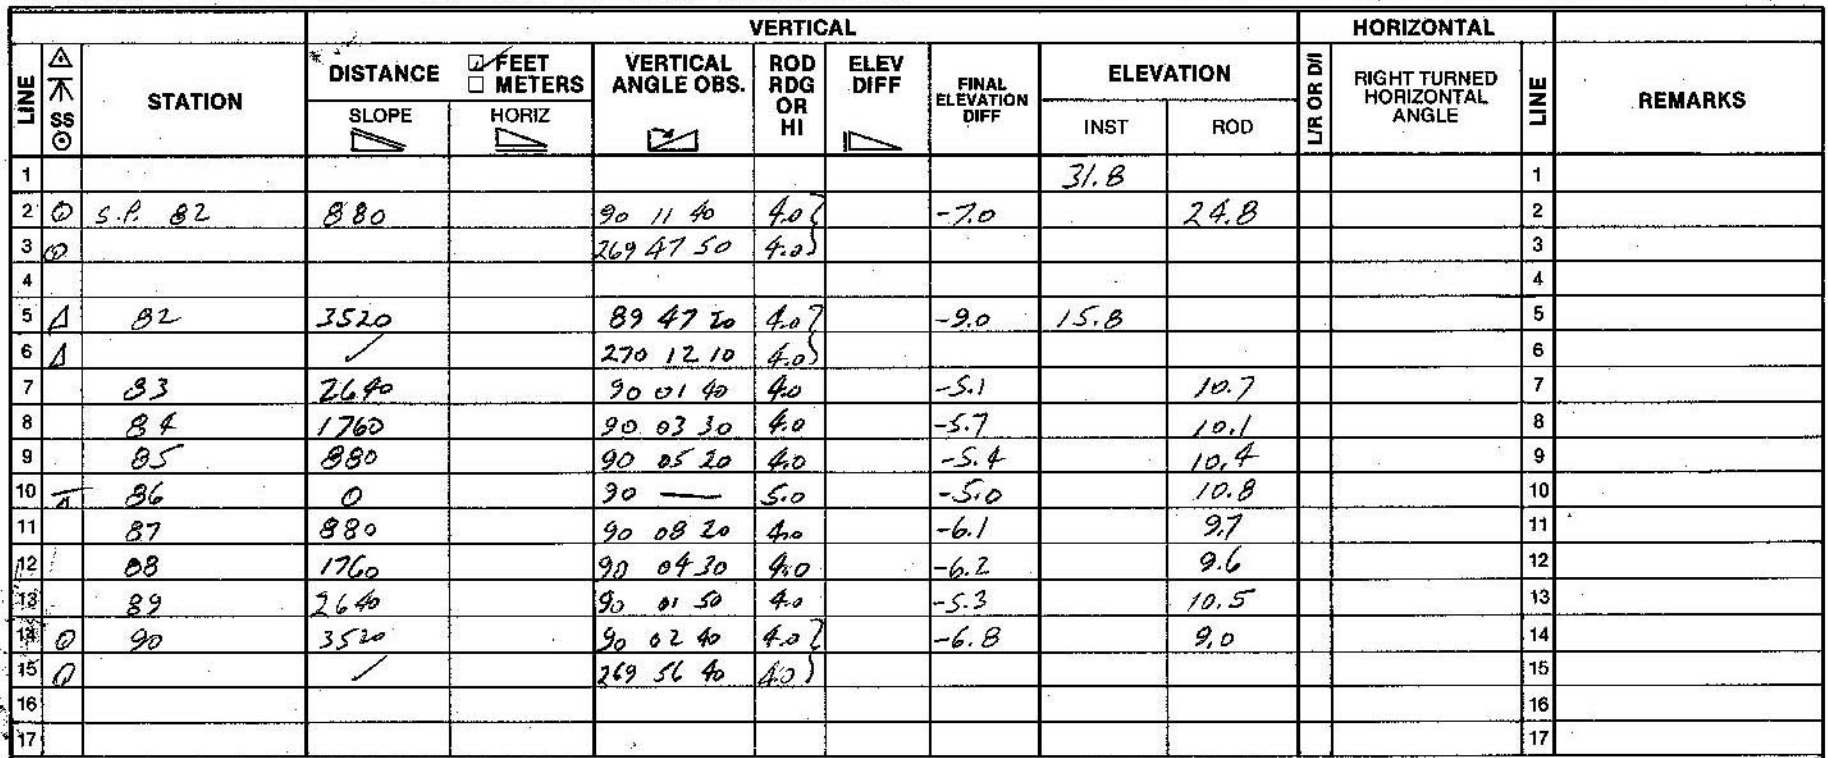 VERTICAL HORIZONTAL
LINE SS STATION DISTANCE FEET METERS VERTICAL ANGLE OBS. ROD RDG OR HI ELEV DIFF FINAL ELEVATION DIFF ELEVATION L/R OR D/I RIGHT TURNED HORIZONTAL ANGLE LINE REMARKS
SLOPE HORIZ INST ROD
1 31.8 1
2 S.P. 82 880 90 11 40 4.0 -7.0 24.8 2
3 269 47 50 4.0 3
4 4
5 82 3520 89 47 20 4.0 -9.0 15.8 5
6 270 12 10 4.0 6
7 83 2640 90 01 40 4.0 -5.1 10.7 7
8 84 1760 90 03 30 4.0 -5.7 10.1 8
9 85 880 90 05 20 4.0 -5.4 10.4 9
10 86 0 90 — 5.0 -5.0 10.8 10
11 87 880 90 08 20 4.0 -6.1 9.7 11
12 88 1760 90 04 30 4.0 -6.2 9.6 12
13 89 2640 90 01 50 4.0 -5.3 10.5 13
14 90 3520 90 02 40 4.0 -6.8 9.0 14
15 269 56 40 4.0 15
16 16
17 17